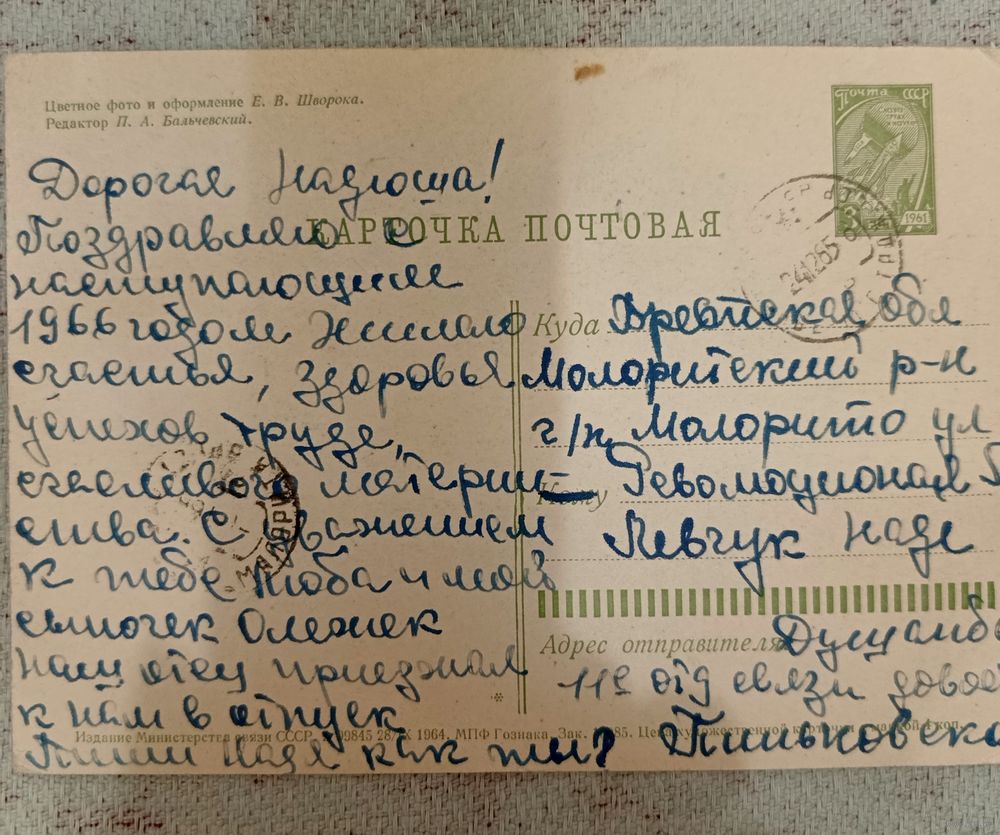 Цветное фото и оформление Е. В. Шворока.
Редактор П. А. Бальчевский.
ПОЧТА СССР
3
1961
24 12 65
КАРТОЧКА ПОЧТОВАЯ
Дорогая Надюша!
Поздравляю с
наступающим
1966 годом Желаю
счастья, здоровья
успехов труде,
счасливого матери-
нства. С уважением
к тебе Люба и мой
сыночек Олежек
наш отец приезжал
к нам в отпуск
Пиши Надя как ты?
Куда Брестская обл
Малоритский р-н
г/п Малорито ул
Кому Революционая
Левчук Наде
Адрес отправителя Душанб
11е отд связи довос
Пиньковска
МАЛОРИТ
Издание Министерства связи СССР. 09845 28/IX 1964. МПФ Гознака. Зак. 85. Цена художественной карточки с маркой 4 коп.